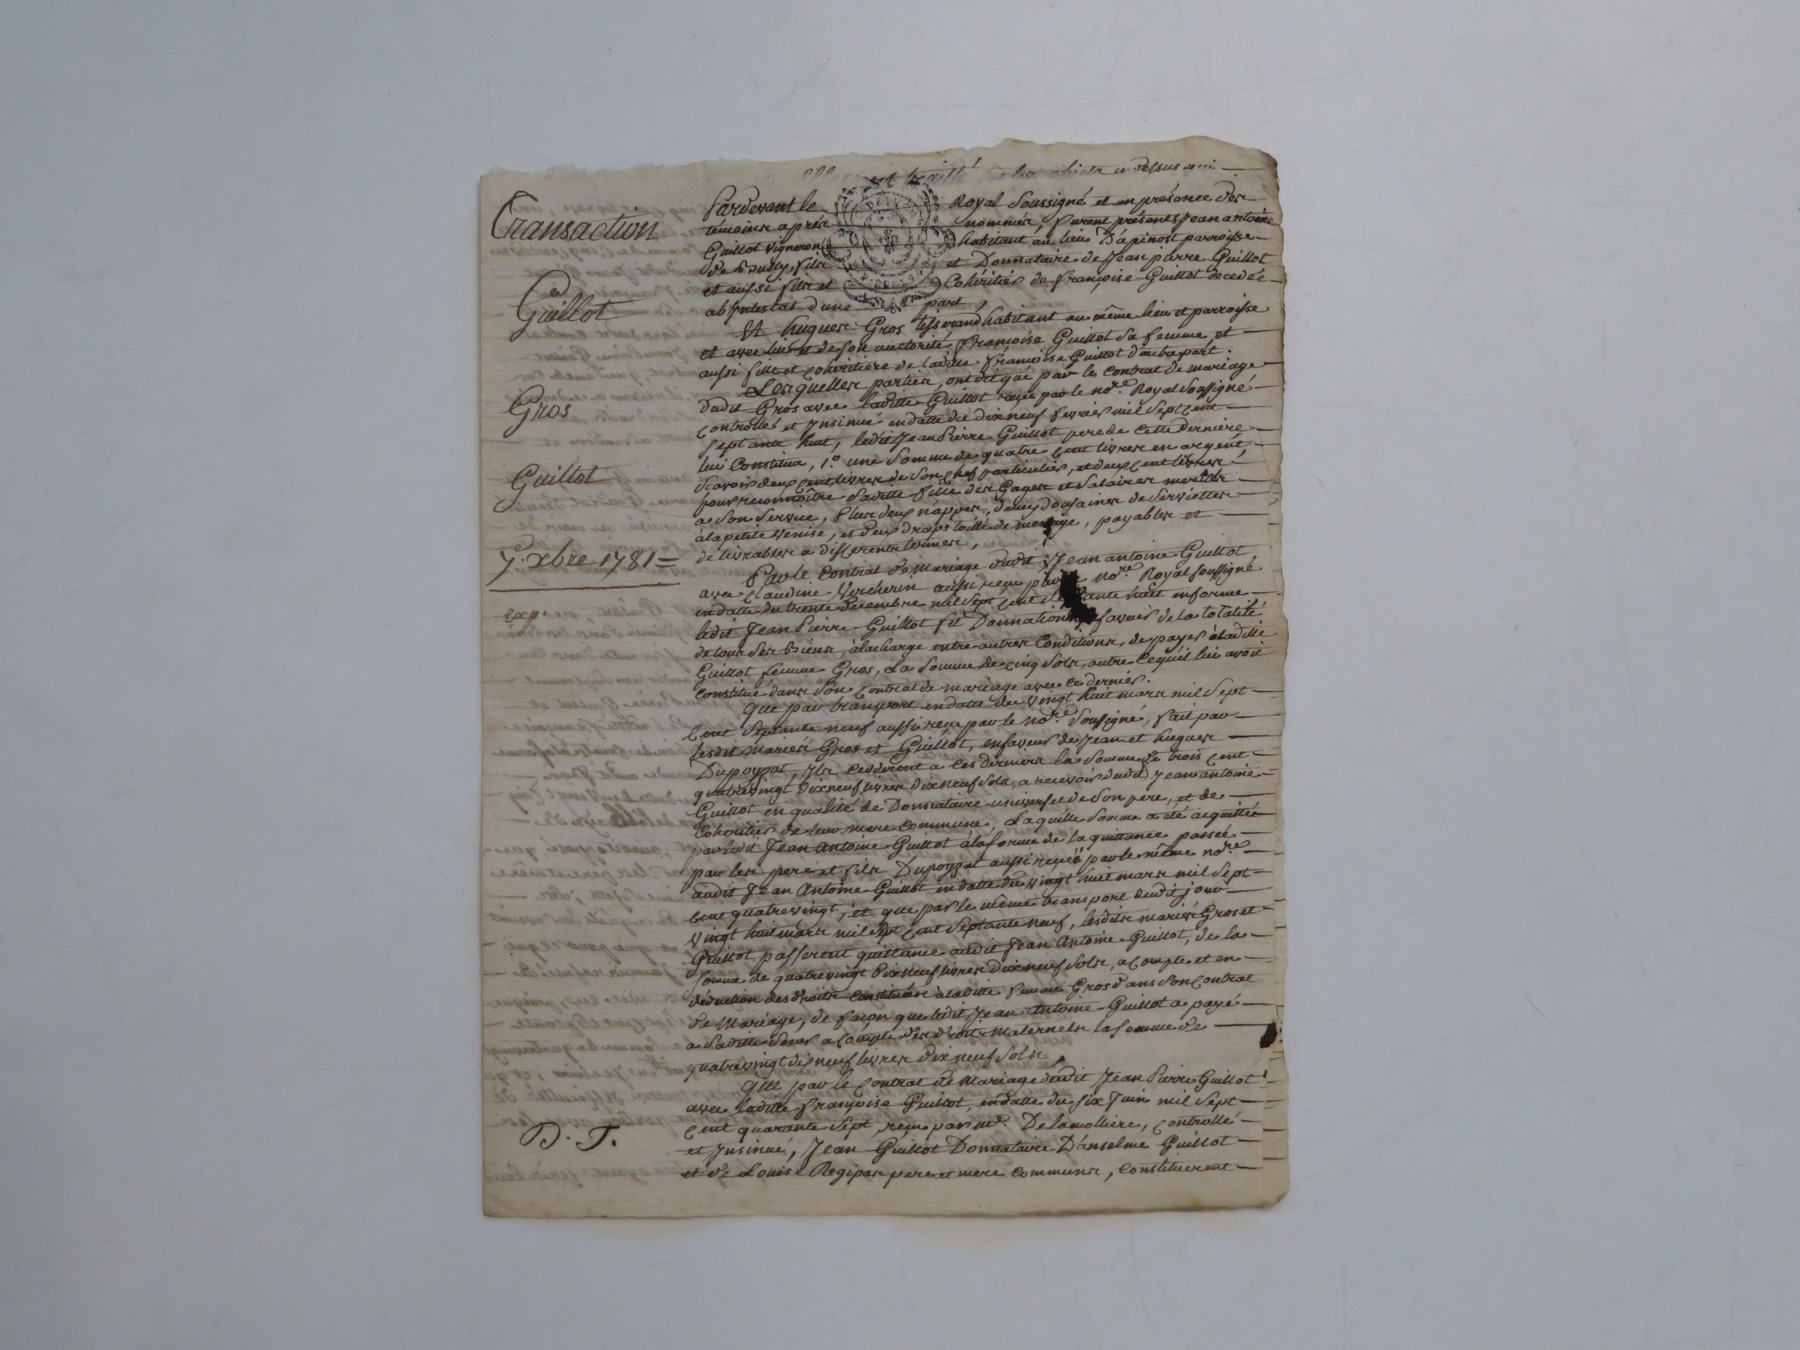 Transaction
Guillot
Gros
Guillot
7. xbre 1781 =
exp
D. T.
ci dessus
Pardevant le Royal Soussigné et en présence des
témoins après nommés, furent présents Jean antoine
Guillot Vigneron habitant au lieu D'apinost parroisse
de Bully, fils et Donnataire de Jean pierre Guillot
et aussi fils et Cohéritier de françoise Guillot decedée
abintestat d'une part,
Et hugues Gros tisserand habitant au même lieu et parroisse
et avec lui et de son auctorité françoise Guillot sa femme, et
aussi fille et cohéritière de laditte françoise Guillot d'autre part.
Lesquelles parties, ont dit que par le contrat de mariage
dudit Gros avec laditte Guillot reçu par le nore. Royal Soussigné
controllés et Insinué en datte du dix neuf fevrier mil sept cent
septante huit, ledit Jean Pierre Guillot pere de cette derniere
lui Constitua, 1.° une somme de quatre cent livres en argent,
scavoir deux cent livres de son chef particulier, et deux cent livres
pour reconnoître saditte fille des Gages et salaires merités
a son service, plus deux nappes, deux douzaines de serviettes
à la petite venise, et deux draps toille de menage, payables et
delivrables a differents termes,
Par le Contrat de Mariage dudit Jean antoine Guillot,
avec Claudine Vercherin aussi reçu par nore. Royal soussigné
en datte du trente Decembre mil sept cent huit en forme,
ledit Jean Pierre Guillot fit Donnation faveur de la totalité
de tous ses biens, à la charge entre autres Conditions, de payer à laditte
Guillot femme Gros, la somme de cinq sols, outre ce qu'il lui avoit
Constitué dans son contrat de mariage avec ce dernier.
Que par transport en datte du vingt huit mars mil sept
cent septante neuf aussi reçu par le nore. soussigné, fait par
lesdit mariés Gros et Guillot, en faveur de Jean et hugues
Dupoyzat, Ils cedderent a ces derniers la somme de trois cent
quatrevingt dix neuf livres dix neuf sols, a recevoir dudit Jean antoine
Guillot en qualité de Donnataire universel de son pere, et de
Cohéritier de leur mere commune, Laquelle somme a été acquittée
par ledit Jean Antoine Guillot à la forme de la quittance passée
par les pere et fils Dupoyzat aussi reçüe par le même nore.
audit Jean Antoine Guillot en datte du vingt huit mars mil sept
cent quatrevingt, et que par le même transport dudit jour
vingt huit mars mil sept cent septante neuf, lesdits mariés Gros et
Guillot passerent quittance audit Jean Antoine Guillot, de la
somme de quatrevingt dix neuf livres dix neuf sols, a compte et en
déduction des droits constitués à laditte femme Gros dans son contrat
de Mariage, de façon que ledit Jean Antoine Guillot a payé
a saditte sœur a compte des droits maternels la somme de
quatrevingt dix neuf livres dix neuf sols,
Que par le contrat de Mariage dudit Jean Pierre Guillot
avec laditte françoise Guillot, en datte du six Juin mil sept
cent quarante sept, reçu par me. Delamolliere, controllé
et Insinué, Jean Guillot Donnataire D'anselme Guillot
et de Louise Regipas pere et mere communs, constituerent